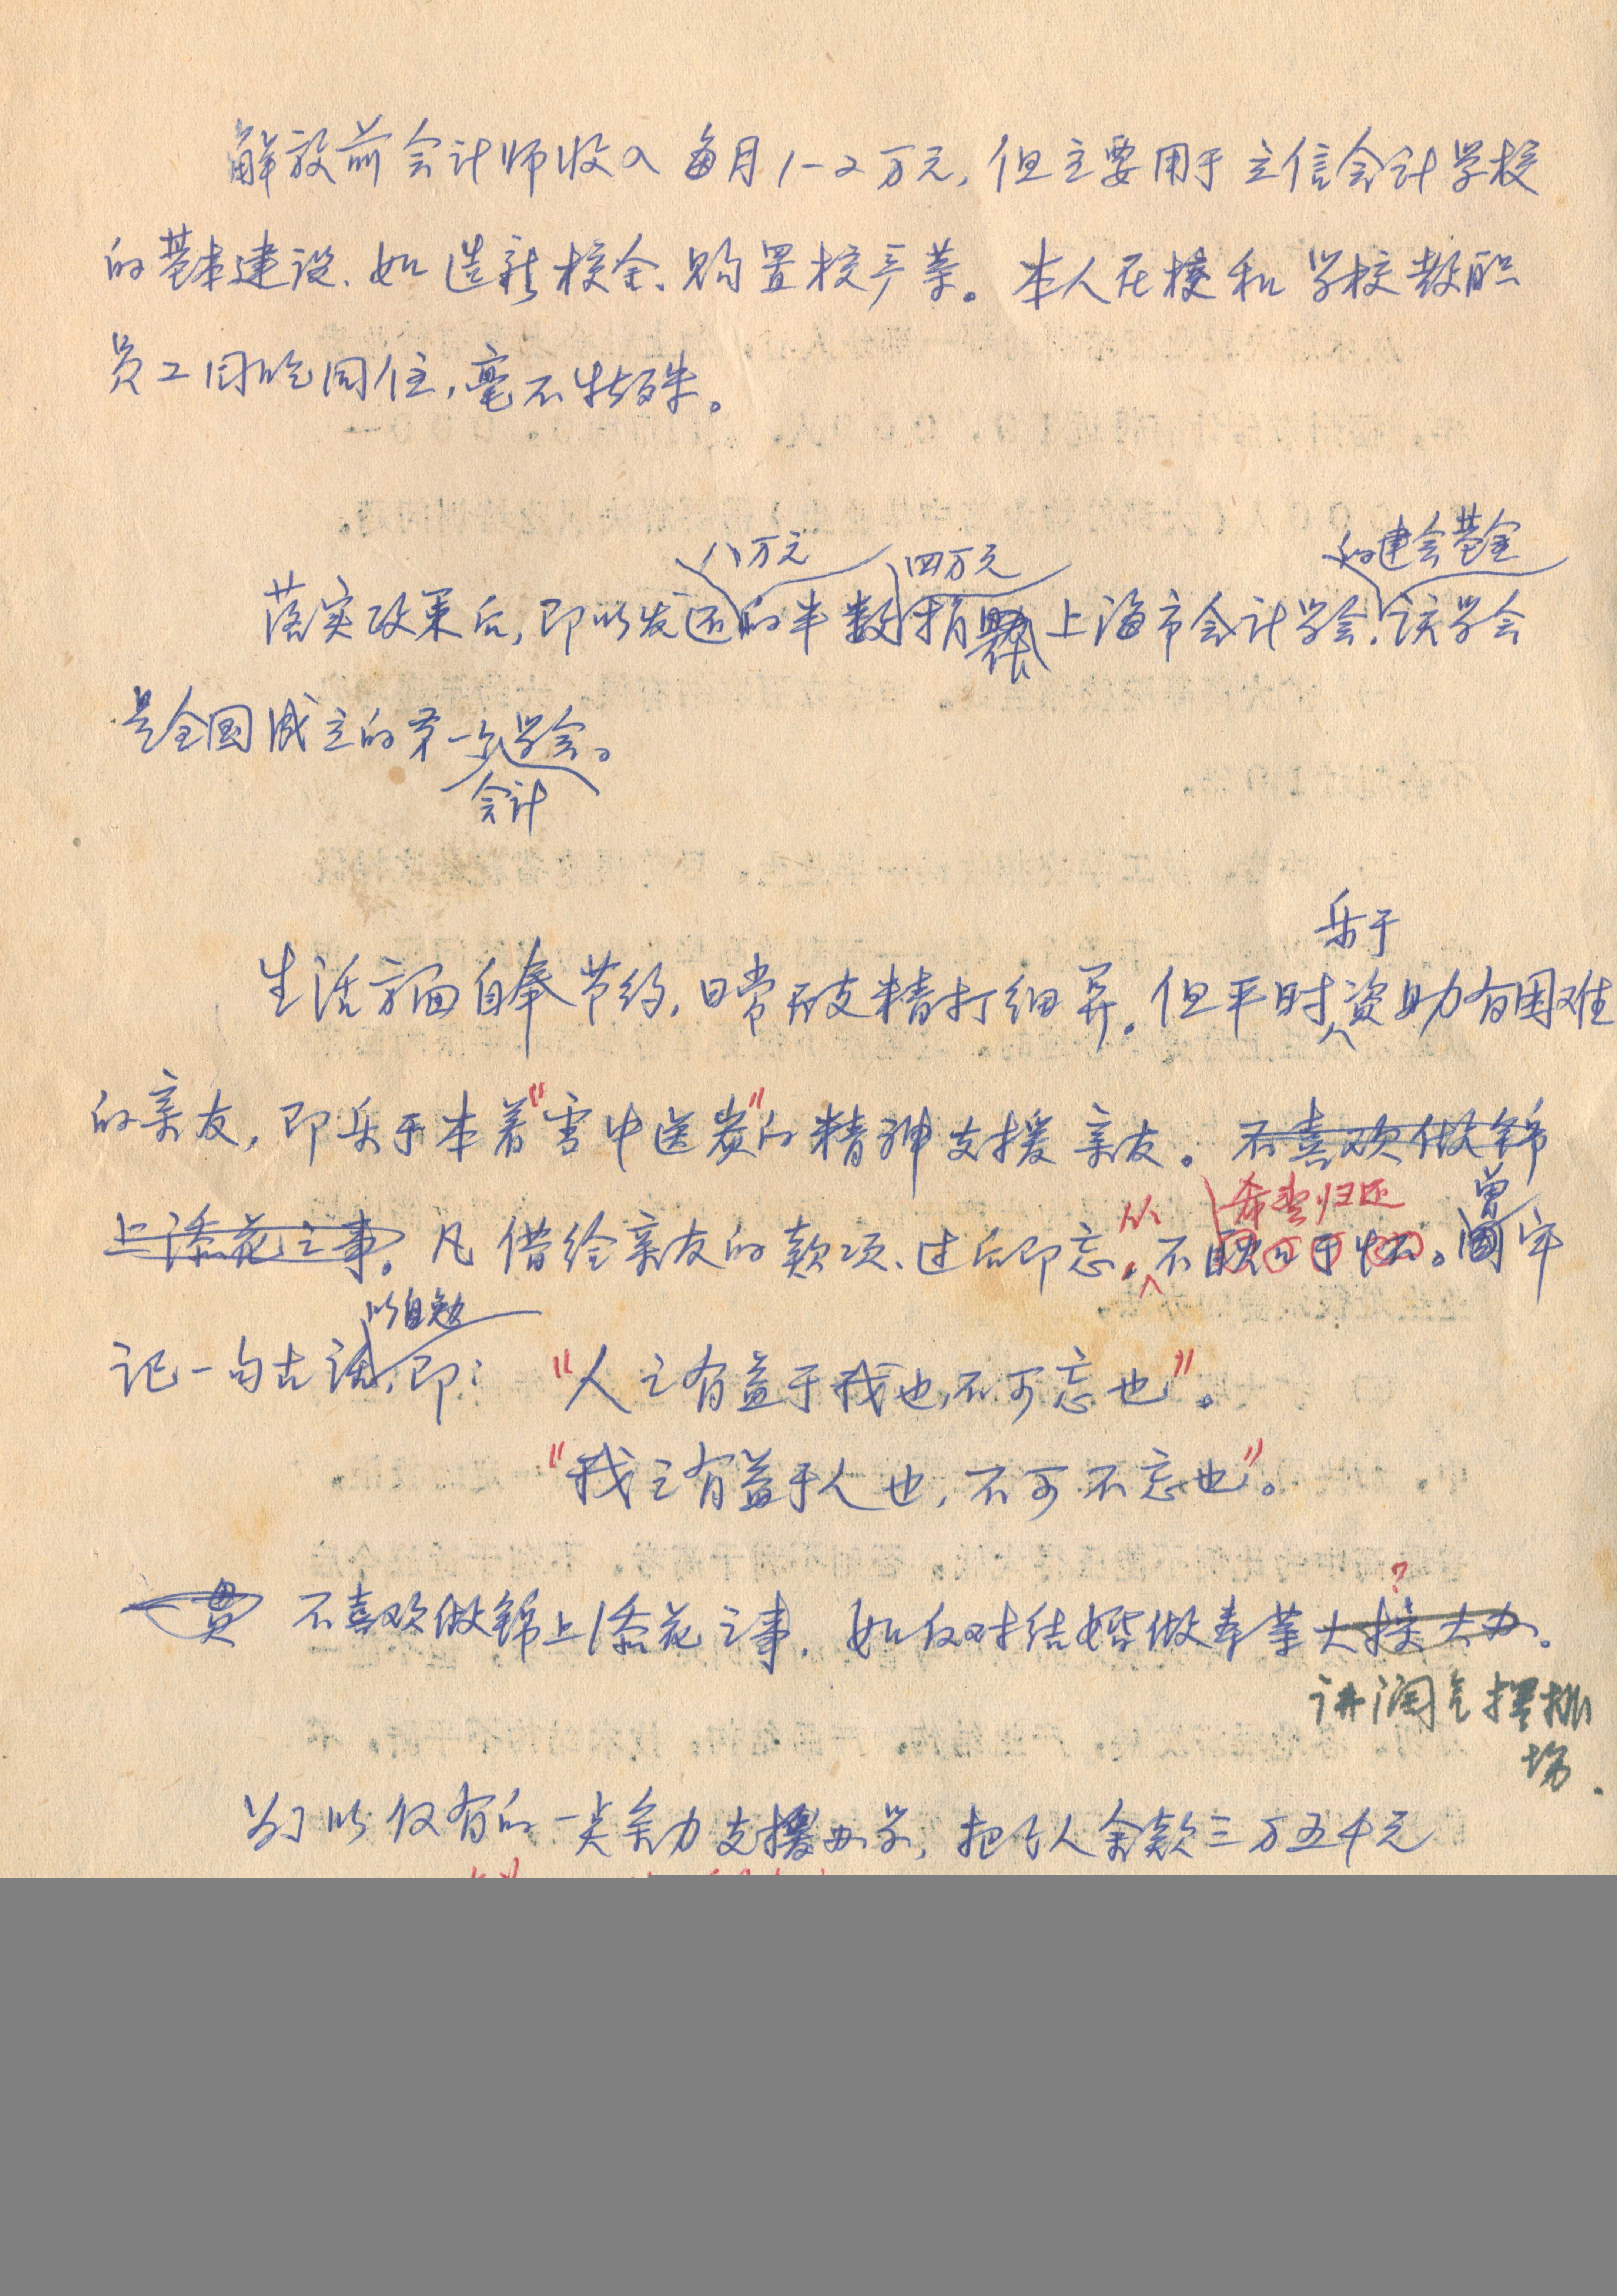 解放前会计师收入每月1-2万元,但主要用于立信会计学校
的基本建设、如造新校舍、购置校产等。本人在校和学校教职
员工同吃同住,毫不特殊。
八万元 四万元 的建会基金
落实政策后,即以发还的半数捐 上海市会计学会.该学会
是全国成立的第一个学会。
会计
乐于
生活方面自奉节约,日常开支精打细算。但平时资助有困难
的亲友,即乐于本着"雪中送炭"的精神支援亲友。不喜欢做锦
上添花之事。凡借给亲友的款项、过后即忘,不 于怀。 牢
从 希望归还 曾
以自勉
记一句古话,即:"人之有益于我也,不可忘也"。
"我之有益于人也,不可不忘也"。
一贯 不喜欢做锦上添花之事.如仅对结婚做寿等大操大办。
?
讲阔气摆排
场.
为了以仅有的一点余力支援办学,把个人余款三万五千元